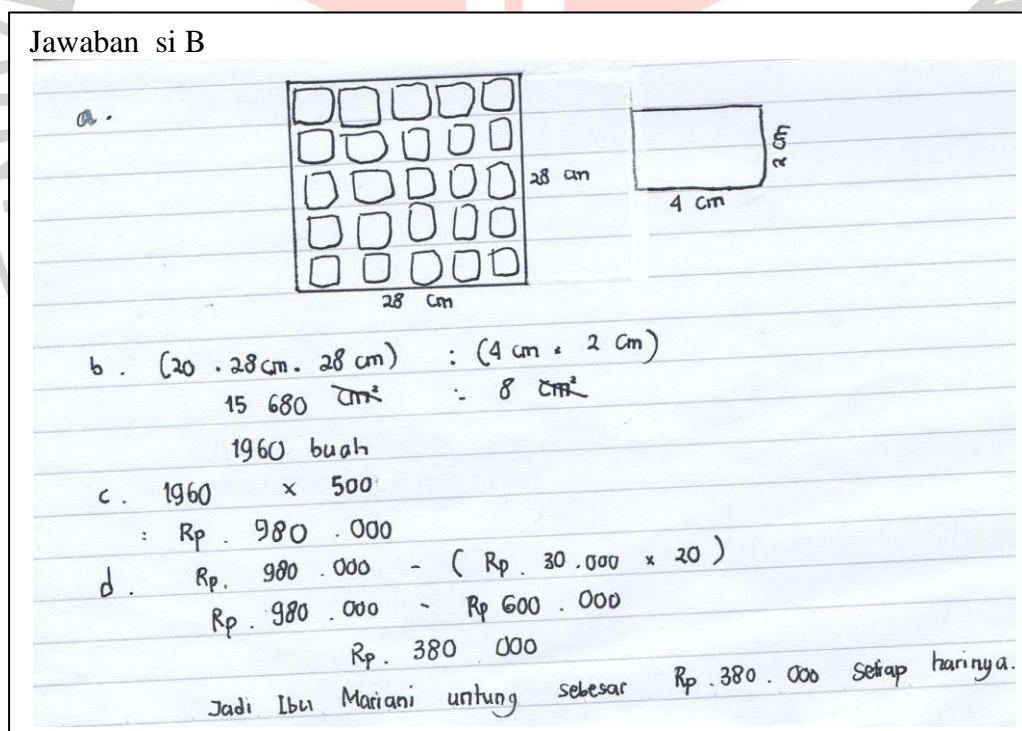 Jawaban si B
a.
28 cm
2 cm
4 cm
28 cm
b. (20 . 28 cm . 28 cm) : (4 cm . 2 cm)
15 680 cm² : 8 cm²
1960 buah
c. 1960 x 500
: Rp. 980.000
d. Rp. 980.000 - ( Rp. 30.000 x 20 )
Rp. 980.000 - Rp 600.000
Rp. 380 000
Jadi Ibu Mariani untung sebesar Rp.380.000 Setiap harinya.